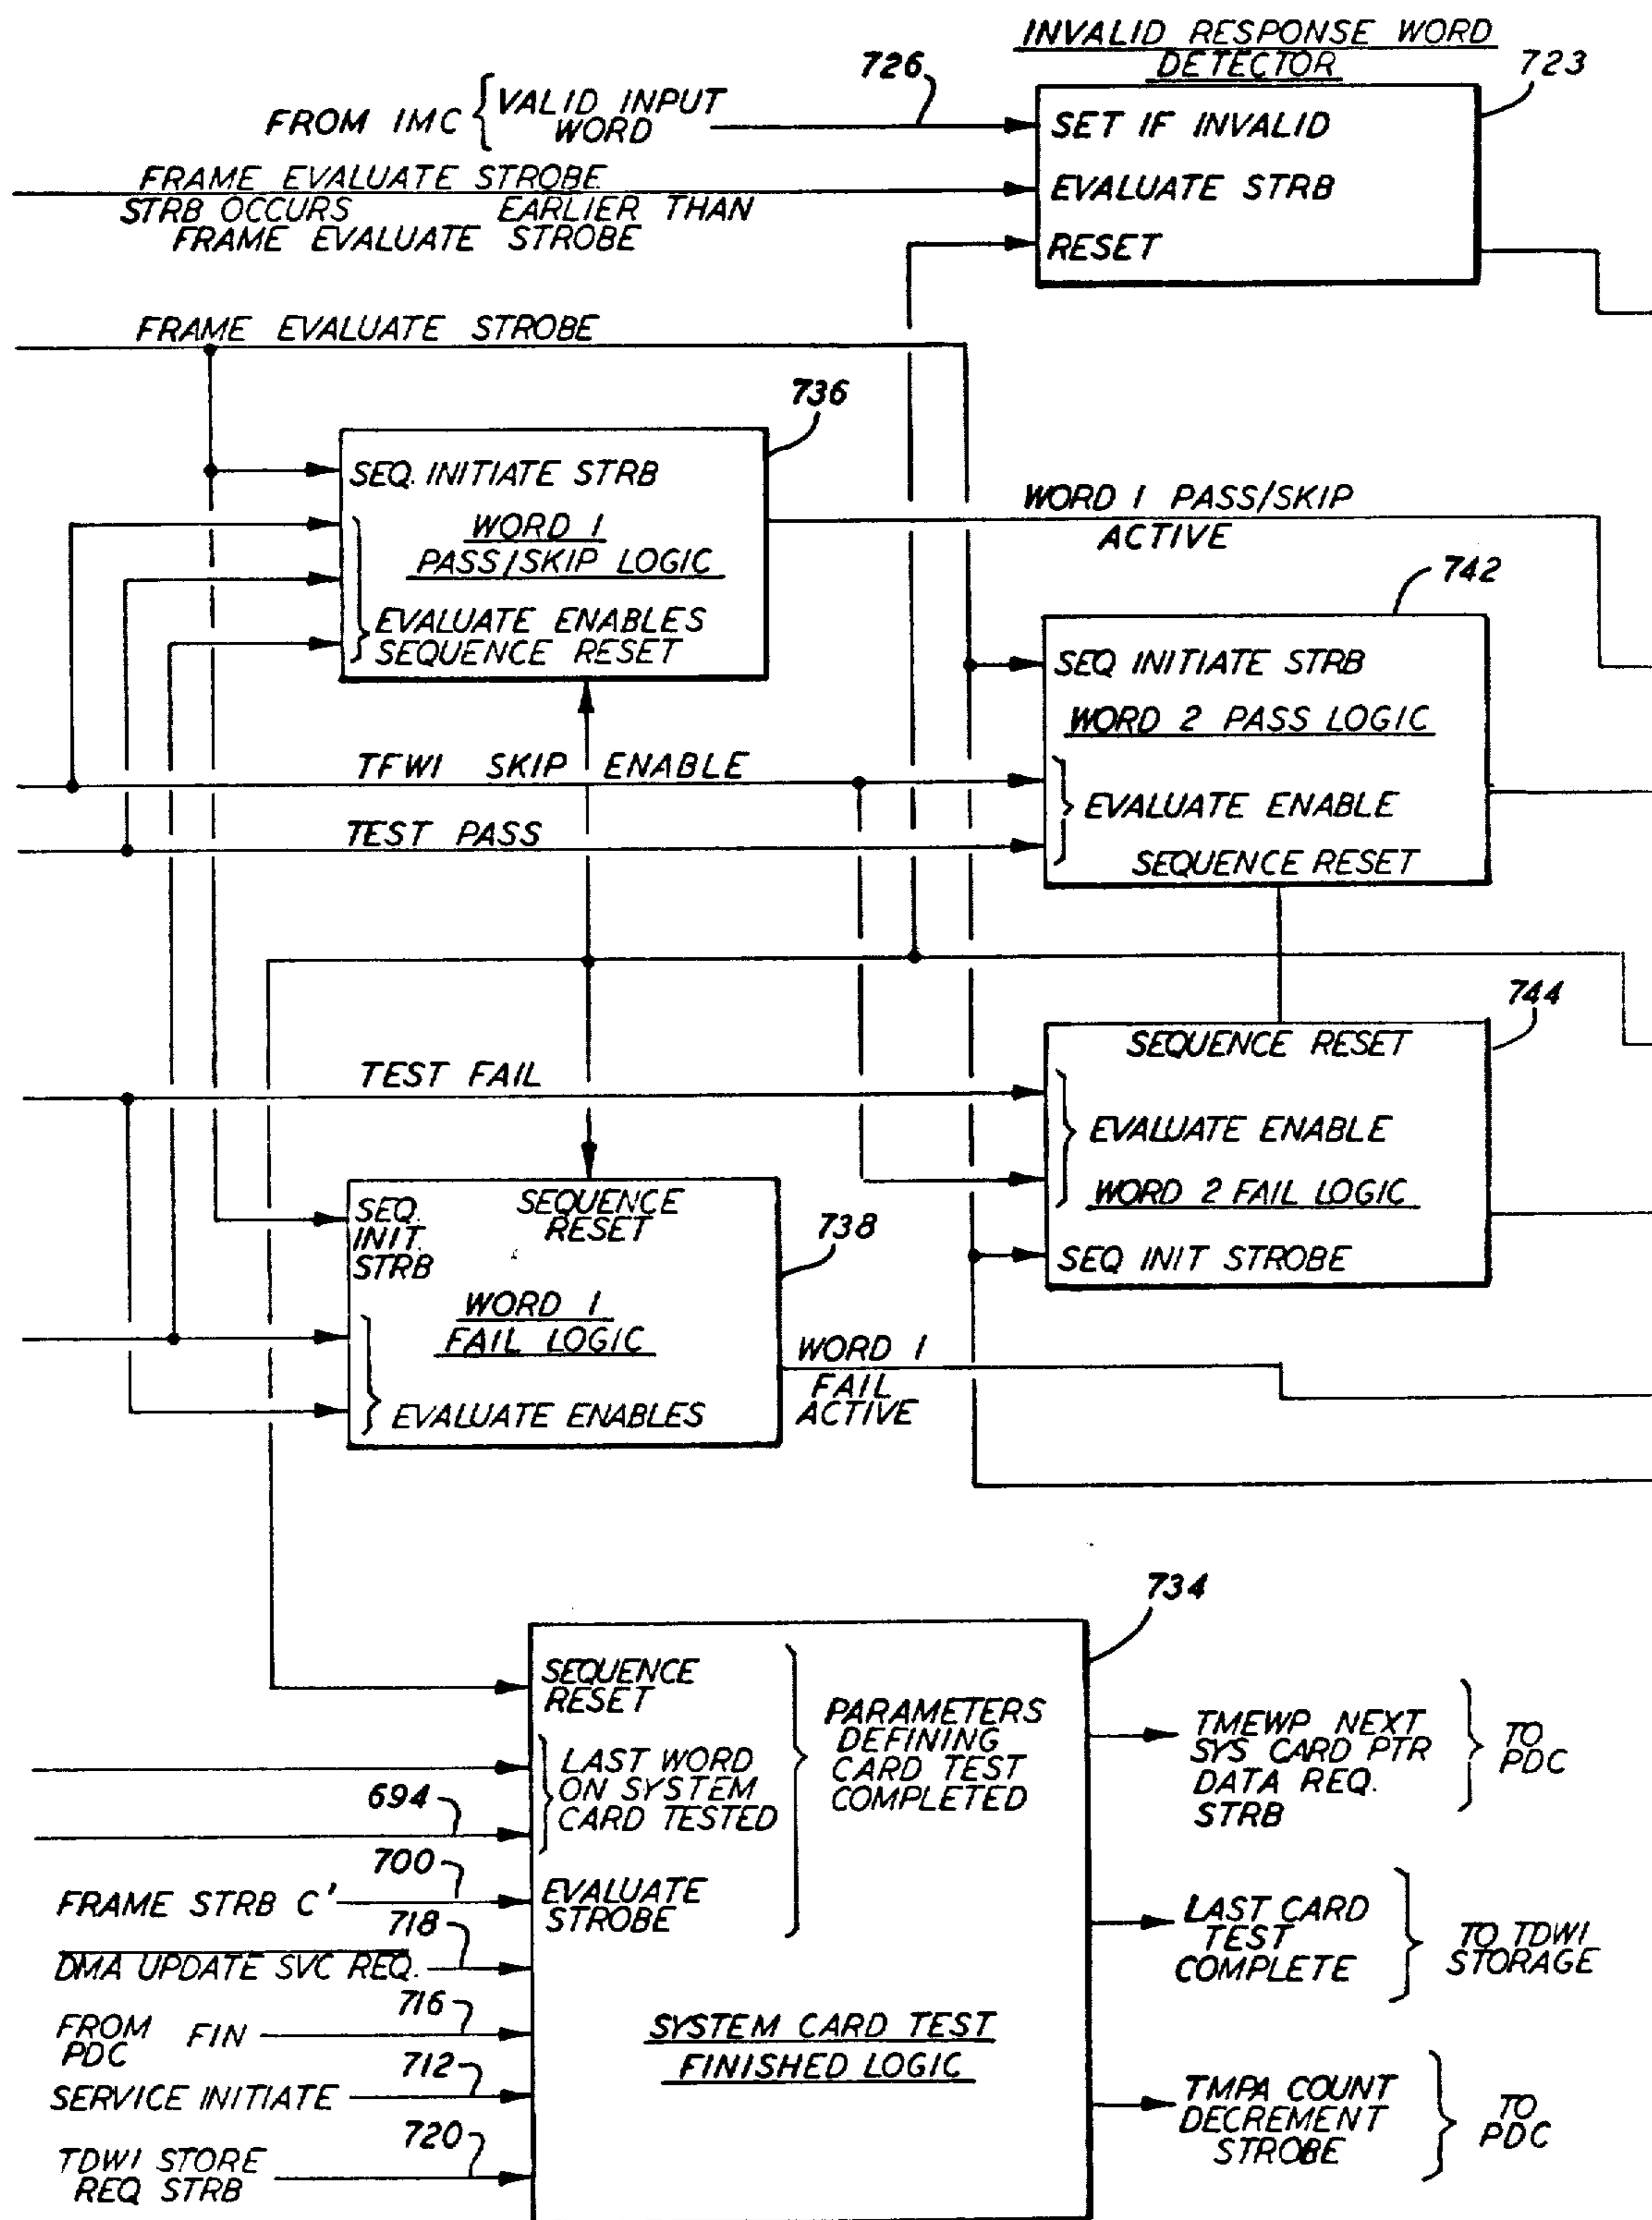 INVALID RESPONSE WORD
DETECTOR
726
723
FROM IMC { VALID INPUT
WORD
SET IF INVALID
FRAME EVALUATE STROBE
EVALUATE STRB
STRB OCCURS EARLIER THAN
FRAME EVALUATE STROBE
RESET
FRAME EVALUATE STROBE
736
SEQ. INITIATE STRB
WORD 1
PASS/SKIP LOGIC
EVALUATE ENABLES
SEQUENCE RESET
WORD 1 PASS/SKIP
ACTIVE
742
SEQ INITIATE STRB
WORD 2 PASS LOGIC
EVALUATE ENABLE
SEQUENCE RESET
TFWI SKIP ENABLE
TEST PASS
744
SEQUENCE RESET
EVALUATE ENABLE
WORD 2 FAIL LOGIC
SEQ INIT STROBE
TEST FAIL
SEQUENCE
RESET
SEQ.
INIT.
STRB
738
WORD 1
FAIL LOGIC
EVALUATE ENABLES
WORD 1
FAIL
ACTIVE
734
SEQUENCE
RESET
LAST WORD
ON SYSTEM
CARD TESTED
PARAMETERS
DEFINING
CARD TEST
COMPLETED
694
700
FRAME STRB C'
EVALUATE
STROBE
718
DMA UPDATE SVC REQ.
716
FROM
PDC
FIN
712
SERVICE INITIATE
720
TDWI STORE
REQ STRB
SYSTEM CARD TEST
FINISHED LOGIC
TMEWP NEXT
SYS CARD PTR
DATA REQ.
STRB
TO
PDC
LAST CARD
TEST
COMPLETE
TO TDWI
STORAGE
TMPA COUNT
DECREMENT
STROBE
TO
PDC